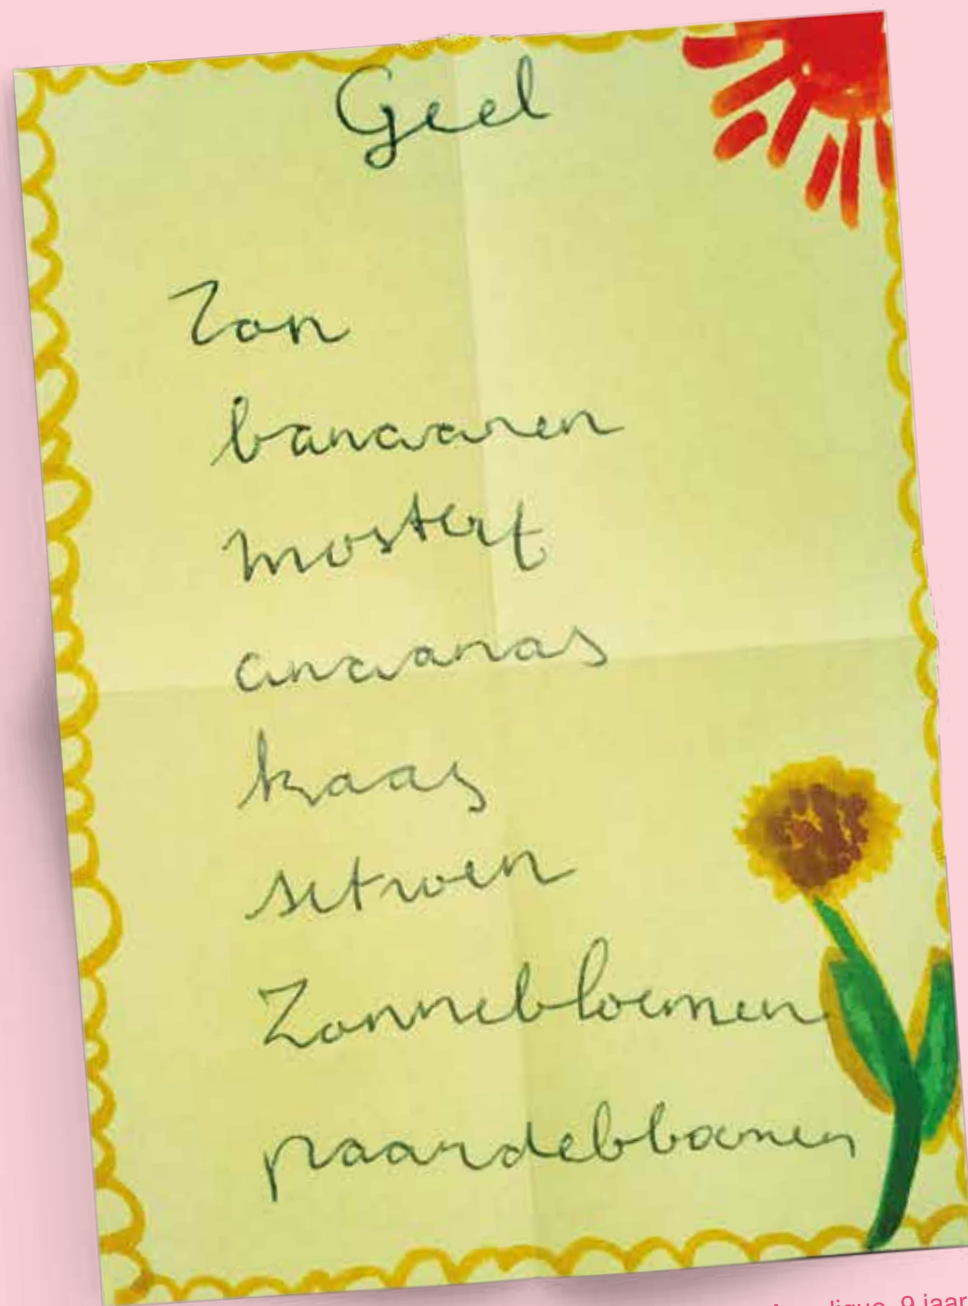 Geel
Zon
banaanen
mostert
anaanas
kaas
sitroen
Zonnebloemen
paardebloemen
9 jaar